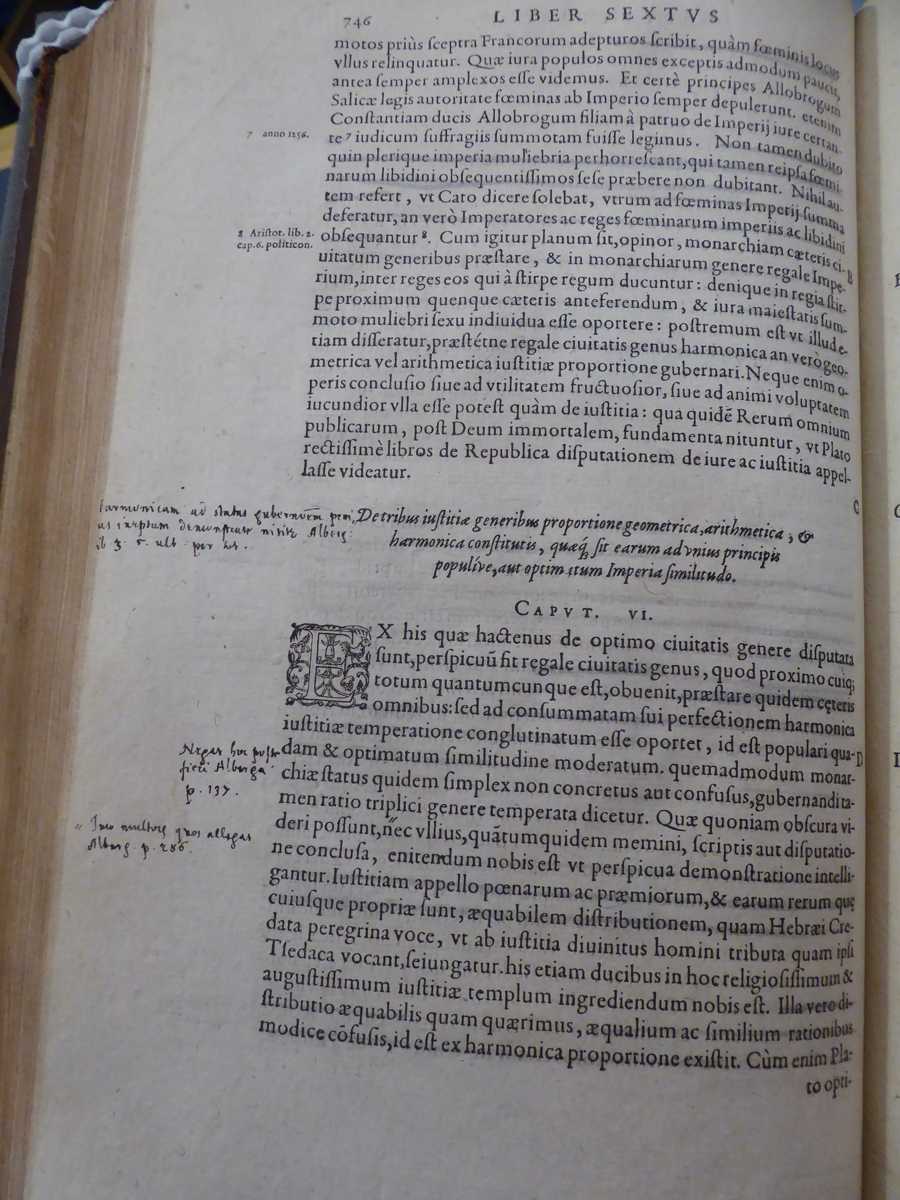 746 LIBER SEXTVS
motos priùs ſceptra Francorum adepturos ſcribit, quàm fœminis locus
vllus relinquatur. Quæ iura populos omnes exceptis admodum paucis,
antea ſemper amplexos eſſe videmus. Et certè principes Allobrogum
Salicæ legis autoritate fœminas ab Imperio ſemper depulerunt. etenim
Conſtantiam ducis Allobrogum filiam à patruo de Imperij iure certan-
7 anno 1256.
te⁷ iudicum ſuffragiis ſummotam fuiſſe legimus. Non tamen dubito
quin plerique imperia muliebria perhorreſcant, qui tamen reipſa fœmi-
narum libidini obſequentiſſimos ſeſe præbere non dubitant. Nihil au-
tem refert, vt Cato dicere ſolebat, vtrum ad fœminas Imperij ſumma
deferatur, an verò Imperatores ac reges fœminarum imperiis ac libidini
8 Ariſtot. lib. 2.
cap. 6. politicon.
obſequantur⁸. Cum igitur planum ſit, opinor, monarchiam cæteris ci-
B
uitatum generibus præſtare, & in monarchiarum genere regale Impe-
rium, inter reges eos qui à ſtirpe regum ducuntur: denique in regia ſtir-
pe proximum quenque cæteris anteferendum, & iura maieſtatis ſum-
moto muliebri ſexu indiuidua eſſe oportere: poſtremum eſt vt illud e-
tiam diſſeratur, præſtétne regale ciuitatis genus harmonica an verò geo-
metrica vel arithmetica iuſtitiæ proportione gubernari. Neque enim o-
peris concluſio ſiue ad vtilitatem fructuoſior, ſiue ad animi voluptatem
iucundior vlla eſſe poteſt quàm de iuſtitia: qua quidē Rerum omnium
publicarum, poſt Deum immortalem, fundamenta nituntur, vt Plato
rectiſſimè libros de Republica diſputationem de iure ac iuſtitia appel-
laſſe videatur.
C
harmonicam ad status
Alberg.
De tribus iuſtitiæ generibus proportione geometrica, arithmetica, &
harmonica conſtitutis, quæq; ſit earum ad vnius principis
populíve, aut optimatum Imperia ſimilitudo.
CAPVT. VI.
EX his quæ hactenus de optimo ciuitatis genere diſputata
ſunt, perſpicuū fit regale ciuitatis genus, quod proximo cuiq;
totum quantumcunque eſt, obuenit, præſtare quidem cęteris
omnibus: ſed ad conſummatam ſui perfectionem harmonica
iuſtitiæ temperatione conglutinatum eſſe oportet, id eſt populari qua-
D
Negat hoc posse
fieri Alberga
p. 137.
dam & optimatum ſimilitudine moderatum. quemadmodum monar-
chiæ ſtatus quidem ſimplex non concretus aut confuſus, gubernandi ta-
men ratio triplici genere temperata dicetur. Quæ quoniam obſcura vi-
" Imo multos quos allegat
Alberg. p. 286.
deri poſſunt, " nec vllius, quātum quidem memini, ſcriptis aut diſputatio-
ne concluſa, enitendum nobis eſt vt perſpicua demonſtratione intelli-
gantur. Iuſtitiam appello pœnarum ac præmiorum, & earum rerum quę
cuiuſque propriæ ſunt, æquabilem diſtributionem, quam Hebræi Cre-
data peregrina voce, vt ab iuſtitia diuinitus homini tributa quam ipſi
Tſedaca vocant, ſeiungatur. his etiam ducibus in hoc religioſiſſimum &
auguſtiſſimum iuſtitiæ templum ingrediendum nobis eſt. Illa vero di-
ſtributio æquabilis quam quærimus, æqualium ac ſimilium rationibus
modice cōfuſis, id eſt ex harmonica proportione exiſtit. Cùm enim Pla-
to opti-